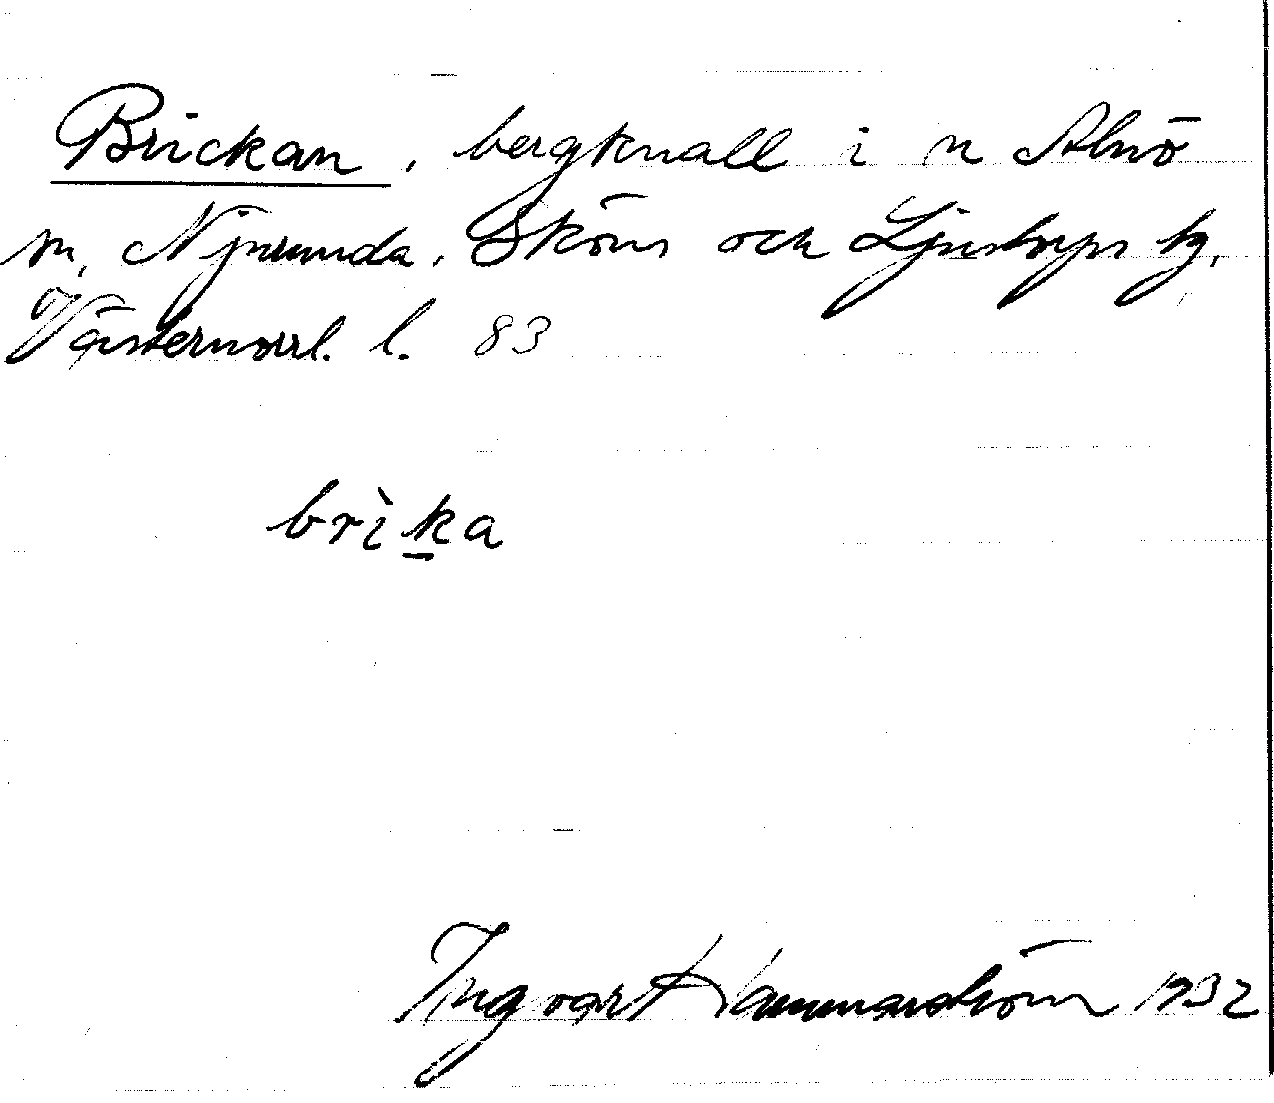 Brickan, bergknall i n Alnö
sn, Njurunda, Sköns och Ljustorps tg,
Västernorrl. l. 83
brìk̲a
Ingvar Hammarström 1932